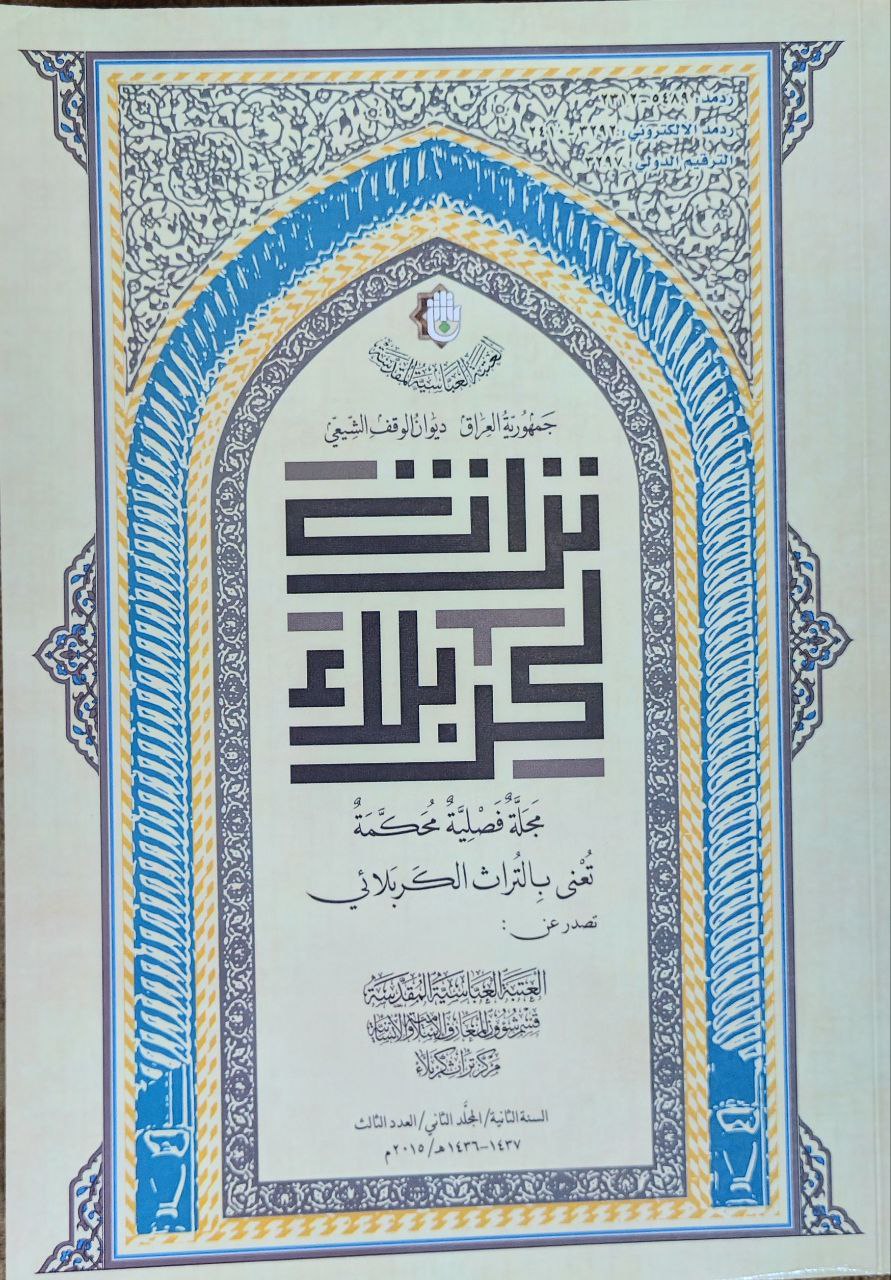 ردمد: ٥٤٨٩-٢٣١٢
ردمد الالكتروني: ٣٢٩٢-٢٤١٠
الترقيم الدولي: ٣٢٩٧
العتبة العباسية المقدسة
جَمهُوريّة العِراق ديوَانُ الوَقفِ الشّيعيّ
تراث
كربلاء
مَجَلَّةٌ فَصْلِيَّةٌ مُحَكَّمَةٌ
تُعْنى بِالتُراث الكَربَلائي
تصدر عن:
العتبة العباسية المقدسة
قسم شؤون المعارف الإسلامية والإنسانية
مركز تراث كربلاء
السنة الثانية/المجلَّد الثاني/العدد الثالث
١٤٣٧-١٤٣٦هـ/٢٠١٥م